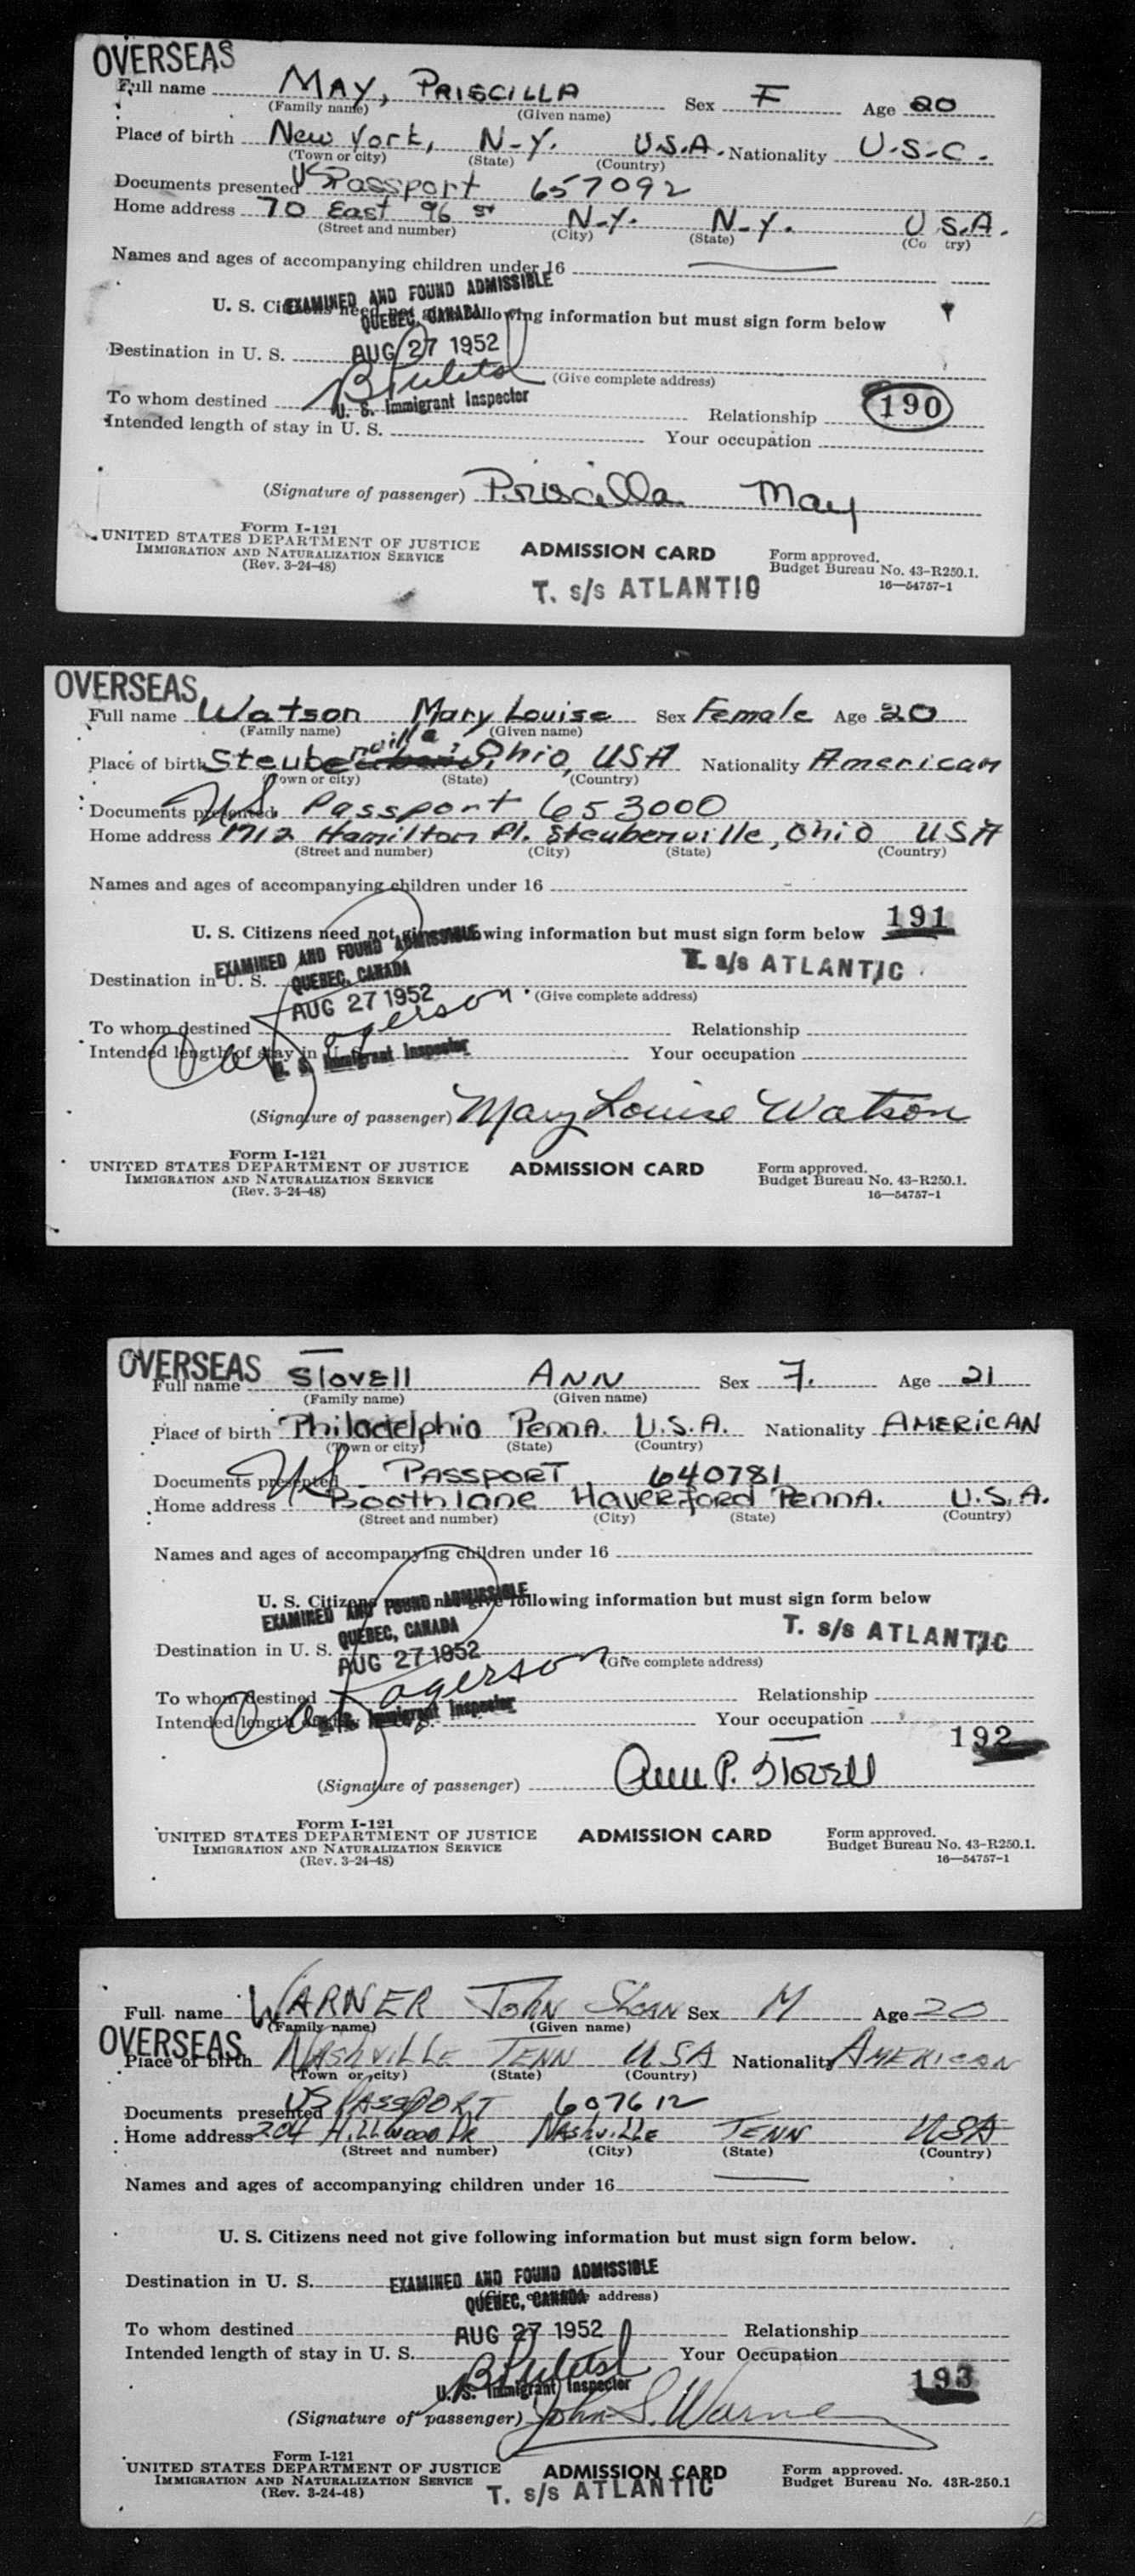 OVERSEAS
Full name MAY, PRISCILLA Sex F Age 20
(Family name) (Given name)
Place of birth New York, N-Y. U.S.A. Nationality U.S.C.
(Town or city) (State) (Country)
Documents presented US Passport 657092
Home address 70 East 96 st N-Y. N-Y. U.S.A.
(Street and number) (City) (State) (Co try)
Names and ages of accompanying children under 16
EXAMINED AND FOUND ADMISSIBLE
U. S. Citizens need not give following information but must sign form below
QUEBEC, CANADA
Destination in U. S. AUG 27 1952
(Give complete address)
To whom destined Relationship 190
U. S. Immigrant Inspector
Intended length of stay in U. S. Your occupation
(Signature of passenger) Priscilla May
Form I-121
UNITED STATES DEPARTMENT OF JUSTICE
IMMIGRATION AND NATURALIZATION SERVICE
(Rev. 3-24-48)
ADMISSION CARD
T. s/s ATLANTIC
Form approved.
Budget Bureau No. 43-R250.1.
16—54757-1
OVERSEAS
Full name Watson Mary Louise Sex Female Age 20
(Family name) (Given name)
Place of birth Steubenville, Ohio, USA Nationality American
(Town or city) (State) (Country)
Documents presented US Passport 653000
Home address 1712 Hamilton Pl. Steubenville, Ohio USA
(Street and number) (City) (State) (Country)
Names and ages of accompanying children under 16
191
U. S. Citizens need not give following information but must sign form below
EXAMINED AND FOUND ADMISSIBLE
T. s/s ATLANTIC
Destination in U. S. QUEBEC, CANADA
AUG 27 1952 (Give complete address)
To whom destined Relationship
Intended length of stay in U. S. Your occupation
U. S. Immigrant Inspector
(Signature of passenger) Mary Louise Watson
Form I-121
UNITED STATES DEPARTMENT OF JUSTICE
IMMIGRATION AND NATURALIZATION SERVICE
(Rev. 3-24-48)
ADMISSION CARD
Form approved.
Budget Bureau No. 43-R250.1.
16—54757-1
OVERSEAS
Full name Slovell ANN Sex F. Age 21
(Family name) (Given name)
Place of birth Philadelphia Penna. U.S.A. Nationality AMERICAN
(Town or city) (State) (Country)
Documents presented US PASSPORT 640781
Home address Booth lane Haverford Penna. U.S.A.
(Street and number) (City) (State) (Country)
Names and ages of accompanying children under 16
U. S. Citizens need not give following information but must sign form below
EXAMINED AND FOUND ADMISSIBLE
T. s/s ATLANTIC
QUEBEC, CANADA
Destination in U. S. AUG 27 1952
(Give complete address)
To whom destined Relationship
Intended length of stay in U. S. Your occupation
U. S. Immigrant Inspector
192
(Signature of passenger) Ann P. Slovell
Form I-121
UNITED STATES DEPARTMENT OF JUSTICE
IMMIGRATION AND NATURALIZATION SERVICE
(Rev. 3-24-48)
ADMISSION CARD
Form approved.
Budget Bureau No. 43-R250.1.
16—54757-1
Full name WARNER John Sloan Sex M Age 20
(Family name) (Given name)
OVERSEAS
Place of birth NASHVILLE TENN USA Nationality AMERICAN
(Town or city) (State) (Country)
Documents presented US PASSPORT 607612
Home address 204 Hillwood Dr Nashville TENN USA
(Street and number) (City) (State) (Country)
Names and ages of accompanying children under 16
U. S. Citizens need not give following information but must sign form below.
Destination in U. S. EXAMINED AND FOUND ADMISSIBLE
QUEBEC, CANADA address)
To whom destined AUG 27 1952 Relationship
Intended length of stay in U. S. Your Occupation
U. S. Immigrant Inspector
193
(Signature of passenger) John S. Warner
Form I-121
UNITED STATES DEPARTMENT OF JUSTICE
IMMIGRATION AND NATURALIZATION SERVICE
(Rev. 3-24-48)
ADMISSION CARD
T. s/s ATLANTIC
Form approved.
Budget Bureau No. 43R-250.1